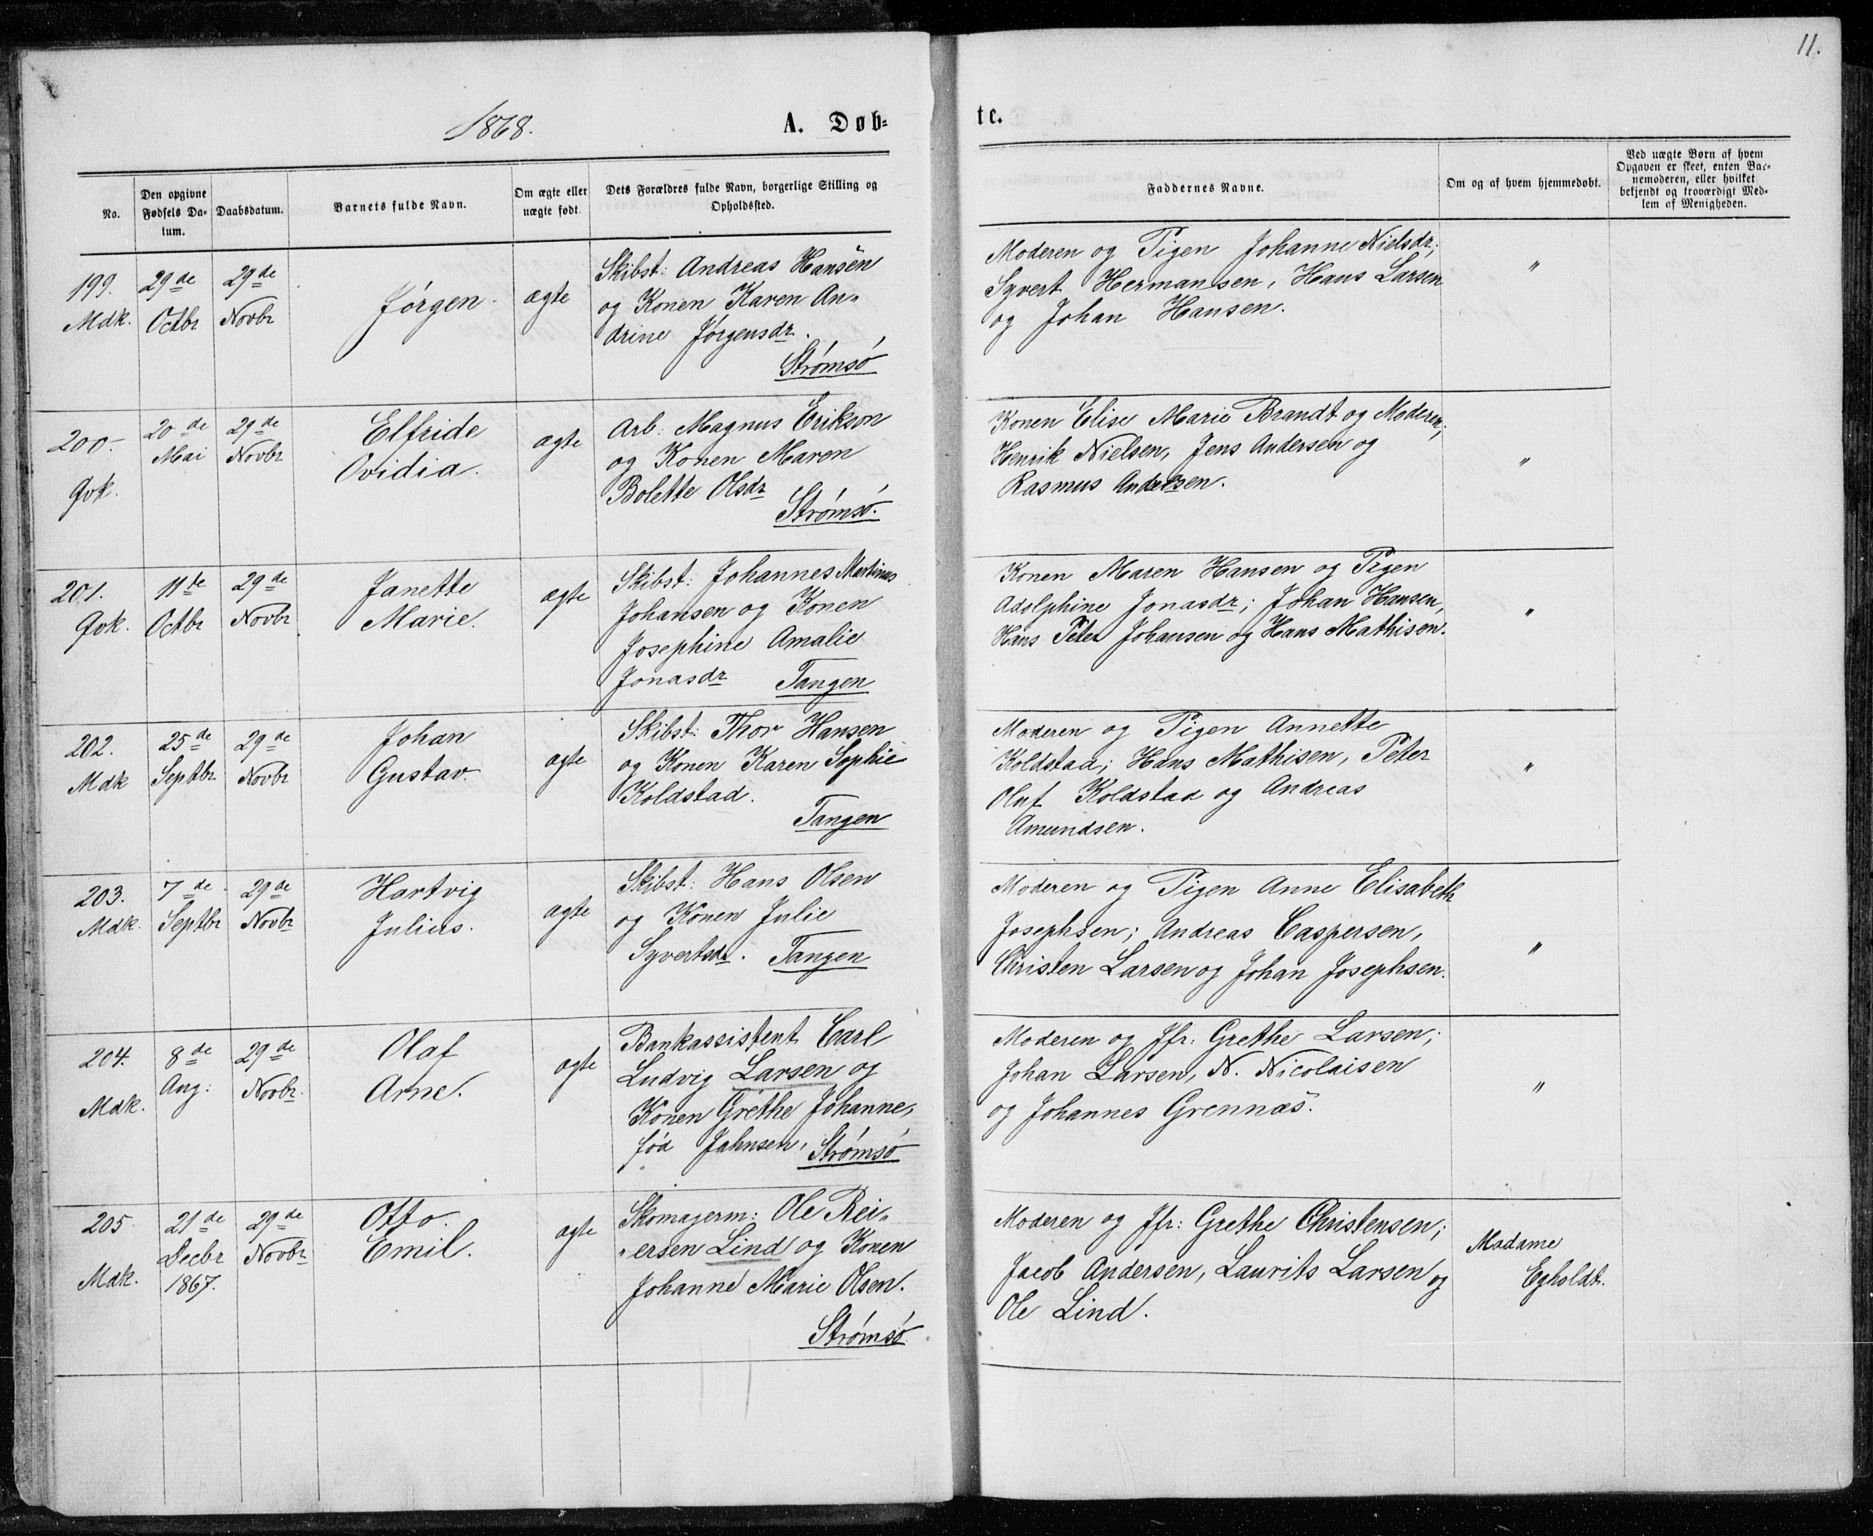 1868.
A. Døb-
No.
Den opgivne
Fødsels Da-
tum.
Daabsdatum.
Barnets fulde Navn.
Om ægte eller
uægte født.
Dets Forældres fulde Navn, borgerlige Stilling og
Opholdssted.
199.
Mdk.
29de
Octbr
29de
Novbr
Jørgen.
ægte
Skibst: Andreas Hansen
og Konen Karen An-
drine Jørgensdr.
Strømsø
200.
Qvk.
20de
Mai
29de
Novbr
Elfride
Ovidia.
ægte
Arb: Magnus Erikson
og Konen Maren
Bolette Olsdr
Strømsø.
201.
Qvk.
11te
Octbr
29de
Novbr
Janette
Marie.
ægte
Skibst: Johannes Martinus
Johansen og Konen
Josephine Amalie
Jonasdr Tangen
202.
Mdk
25de
Septbr
29de
Novbr
Johan
Gustav.
ægte
Skibst: Thor Hansen
og Konen Karen Sophie
Koldstad.
Tangen
203.
Mdk.
7de
Septbr
29de
Novbr
Hartvig
Julius.
ægte
Skibst: Hans Olsen
og Konen Julie
Syvertsdr. Tangen
204.
Mdk.
8de
Aug:
29de
Novbr.
Olaf
Arne.
ægte
Bankassistent Carl
Ludvig Larsen og
Konen Grethe Johanne,
fød Jahnsen, Strømsø
205
Mdk.
21de
Decbr
1867.
29de
Novbr
Otto
Emil.
ægte
Skomagerm: Ole Rei-
ersen Lind og Konen
Johanne Marie Olsen.
Strømsø
11.
te.
Faddernes Navne.
Om og af hvem hjemmedøbt.
Ved uægte Børn af hvem
Opgaven er skeet, enten Bar-
nemoderen, eller hvilket
bekjendt og troværdigt Med-
lem af Menigheden.
Moderen og Pigen Johanne Nielsdr;
Syvert Hermansen, Hans Larsen
og Johan Hansen.
"
Konen Elise Marie Brandt og Moderen;
Henrik Nielsen, Jens Andersen og
Rasmus Andersen.
"
Konen Maren Hansen og Pigen
Adolphine Jonasdr; Johan Hansen,
Hans Peter Johansen og Hans Mathisen.
"
Moderen og Pigen Annette
Koldstad; Hans Mathisen, Peter
Oluf Koldstad og Andreas
Amundsen.
"
Moderen og Pigen Anne Elisabeth
Josephsen; Andreas Caspersen,
Christen Larsen og Johan Josephsen.
"
Moderen og Jfr: Grethe Larsen;
Johan Larsen, N. Nicolaisen
og Johannes Grennæs.
"
Moderen og Jfr: Grethe Christensen;
Jacob Andersen, Laurits Larsen og
Ole Lind.
Madame
Egholdt.